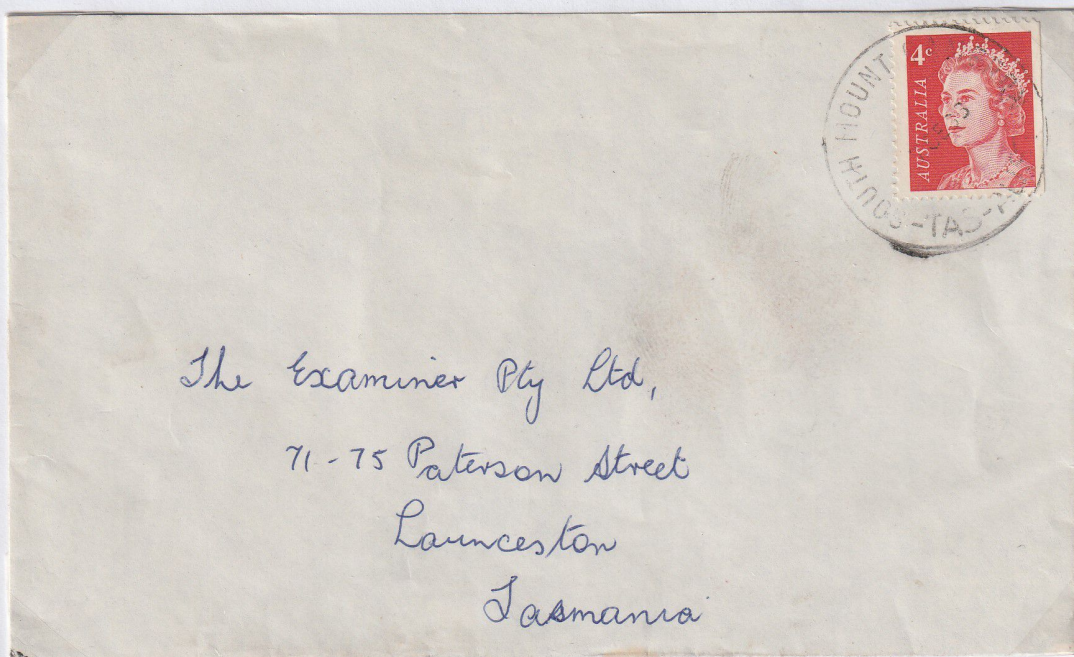 4c
AUSTRALIA
SOUTH MOUNT
-TAS-
The Examiner Pty Ltd,
71-75 Paterson Street
Launceston
Tasmania